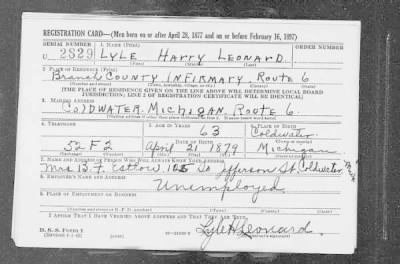 REGISTRATION CARD—(Men born on or after April 28, 1877 and on or before February 16, 1897)
SERIAL NUMBER 1. NAME (Print) ORDER NUMBER
U 2829 LYLE HARRY LEONARD
(First) (Middle) (Last)
2. PLACE OF RESIDENCE (Print)
Branch COUNTY INFIRMARY, ROUTE 6
[THE PLACE OF RESIDENCE GIVEN ON THE LINE ABOVE WILL DETERMINE LOCAL BOARD
JURISDICTION; LINE 2 OF REGISTRATION CERTIFICATE WILL BE IDENTICAL]
3. MAILING ADDRESS
COLDWATER, MICHIGAN, ROUTE 6.
4. TELEPHONE 5. AGE IN YEARS 6. PLACE OF BIRTH
63 Coldwater
DATE OF BIRTH
52 F2 April 21 1879 Michigan
7. NAME AND ADDRESS OF PERSON WHO WILL ALWAYS KNOW YOUR ADDRESS
Mrs B. F. So Jefferson St. Coldwater Mich
8. EMPLOYER'S NAME AND ADDRESS
Unemployed
9. PLACE OF EMPLOYMENT OR BUSINESS
I AFFIRM THAT I HAVE VERIFIED ABOVE ANSWERS AND THAT THEY ARE TRUE.
D. S. S. Form 1
Lyle H Leonard.